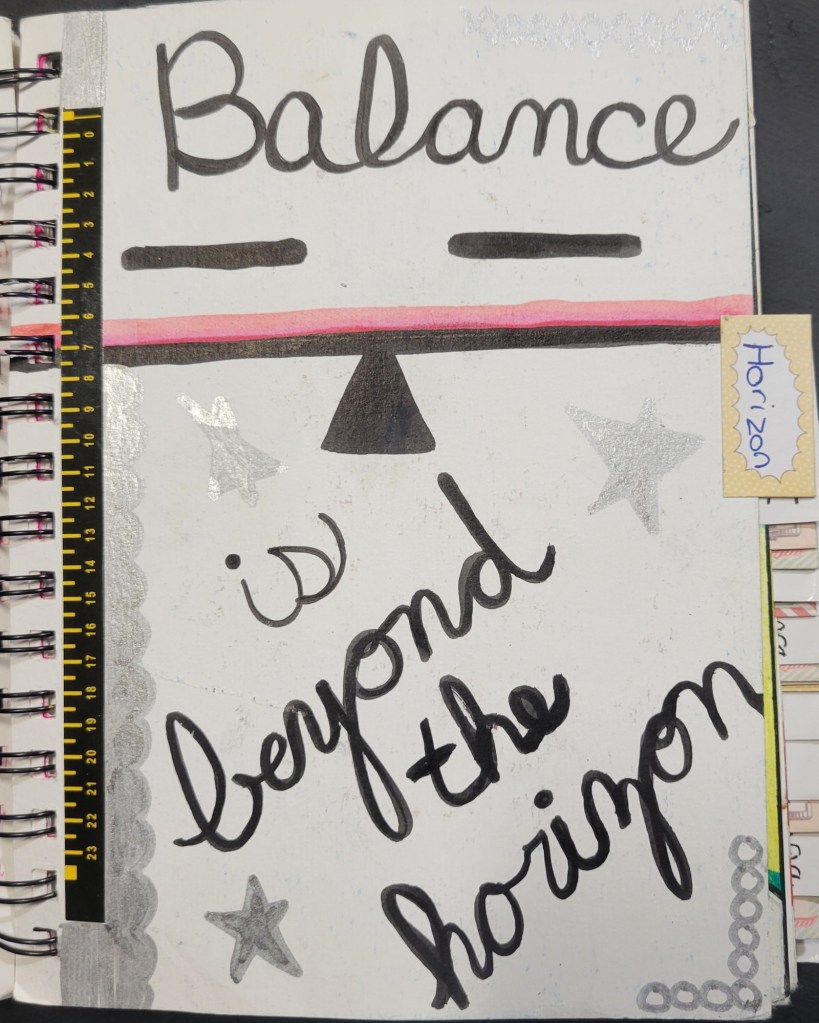 Balance
Horizon
is
beyond
the
horizon
0
1
2
3
4
5
6
7
8
9
10
11
12
13
14
15
16
17
18
19
20
21
22
23